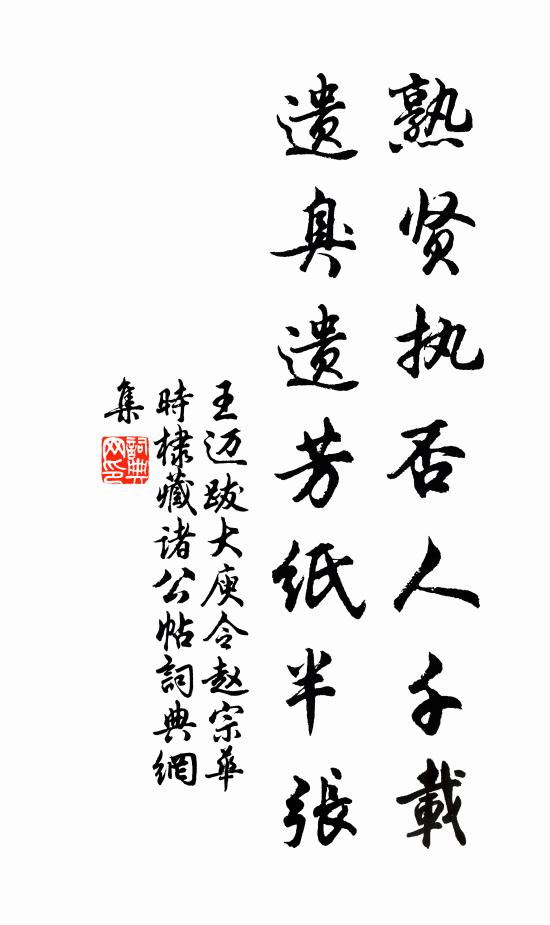 熟贤执否人千载
遗臭遗芳纸半張
王迈跋大庾令赵宗華
時棣藏诸公帖詞典網
集
詞典
网印